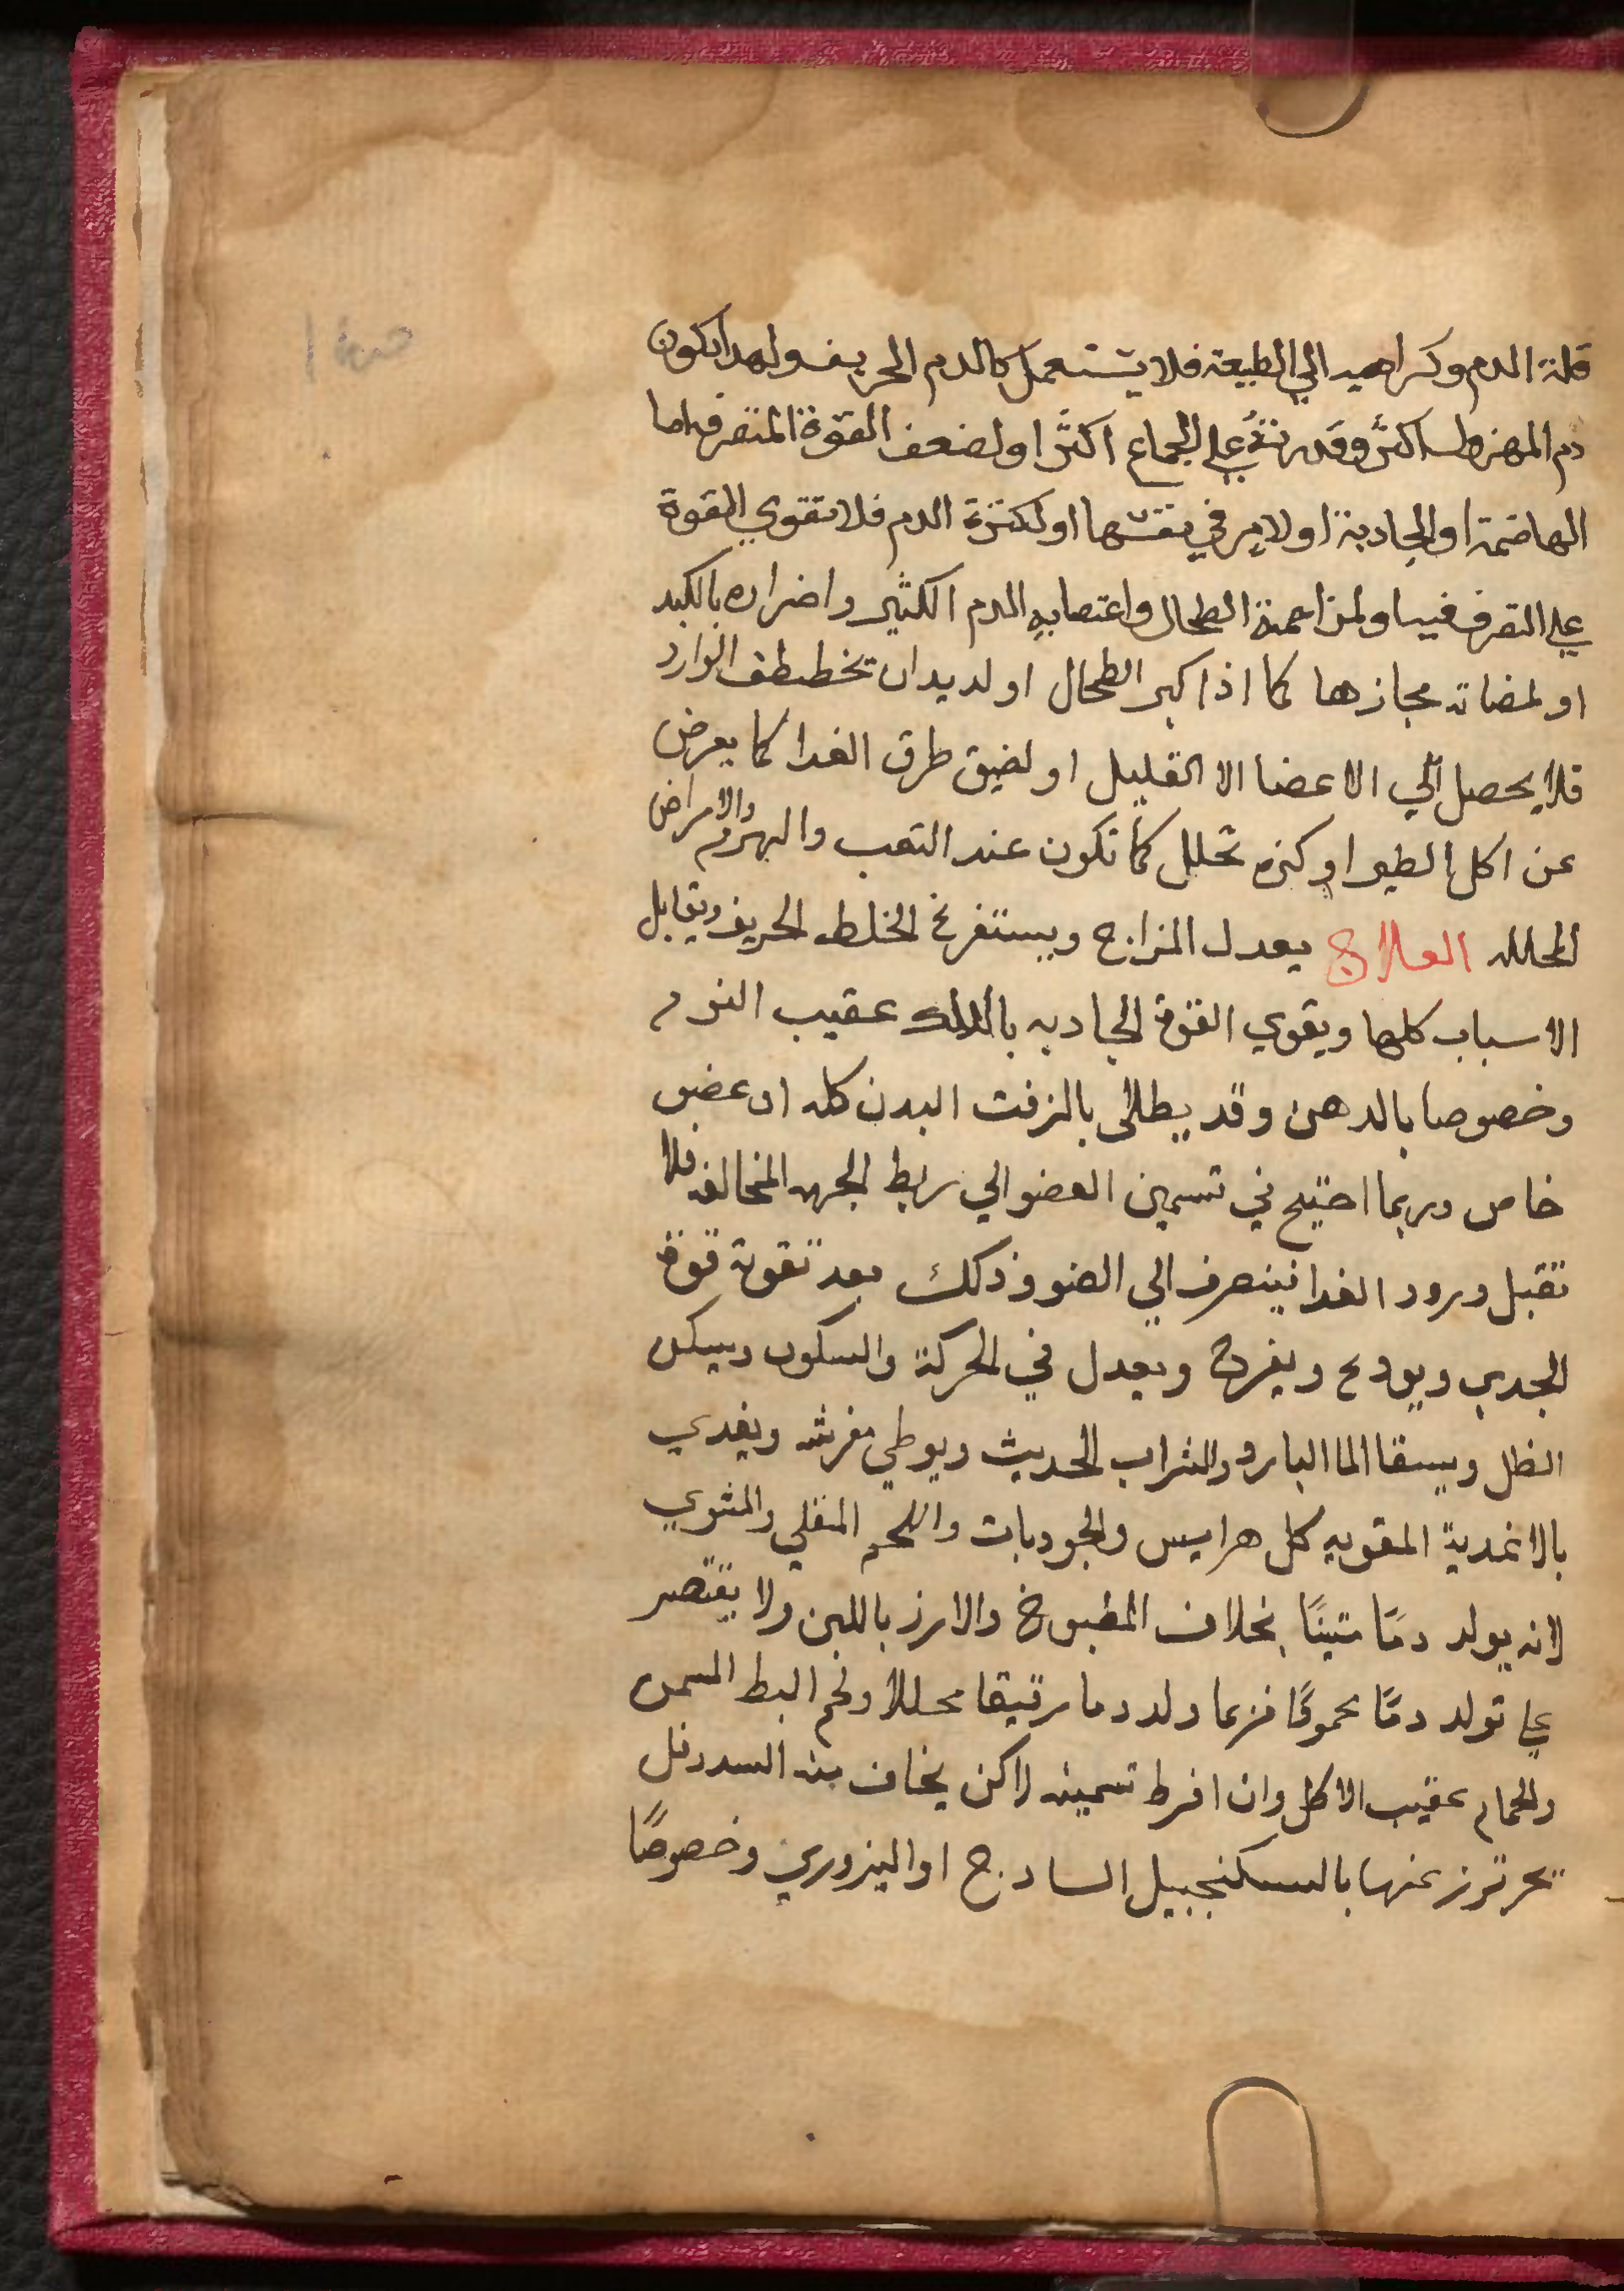 قلة الدم وكراهيه الي الطبيعه فلا يستعمل كالدم الحريف ولهدا يكون
دم المهزول اكثر وقدرته علي الجماع اكثر او لضعف القوة المتصرفه اما
الهاضمة او الجادبة او لامر في نفسها او لكثرة الدم فلا تقوي القوة
علي التصرف فيه او لمزاحمة الطحال واغتصابه الدم الكثير واضراره بالكبد
او لمضاته مجازها كما اذا كبر الطحال او لديدان تخطف الوارد
فلا يحصل الي الاعضا الا القليل او لضيق طرق الغدا كما يعرض
عن اكل الطين او كثره تحلل كما تكون عند التعب والهم والامراض
المحلله العلاج يعدل المزاج ويستفرغ الخلط الحريف ويقابل
الاسباب كلها ويقوي القوة الجادبه بالدلك عقيب النوم
وخصوصا بالدهن وقد يطلى بالزفت البدن كله او عضو
خاص وربما احتيج في تسمين العضو الي ربط الجهه المخالفه فلا
تقبل ورود الغدا فينصرف الي العضو وذلك بعد تقوية قوة
الجدب ويودع ويفرح ويعدل في الحركة والسكون ويسكن
الظل ويسقا الما البارد والشراب الحديث ويوطي مفرشه ويغدي
بالاغدية المقويه كل هرايس والجودبات واللحم المقلي والمشوي
لانه يولد دمًا متينًا بخلاف المطبوخ والارز باللبن ولا يقتصر
علي تولد دمًا محمودًا فربما ولد دما رقيقا محللا ولحم البط المسمن
والحمام عقيب الاكل وان افرط تسمينه لاكن يخاف منه السدد فل
تحرترز عنها بالسكنجبيل السادج او البزوري وخصوصًا